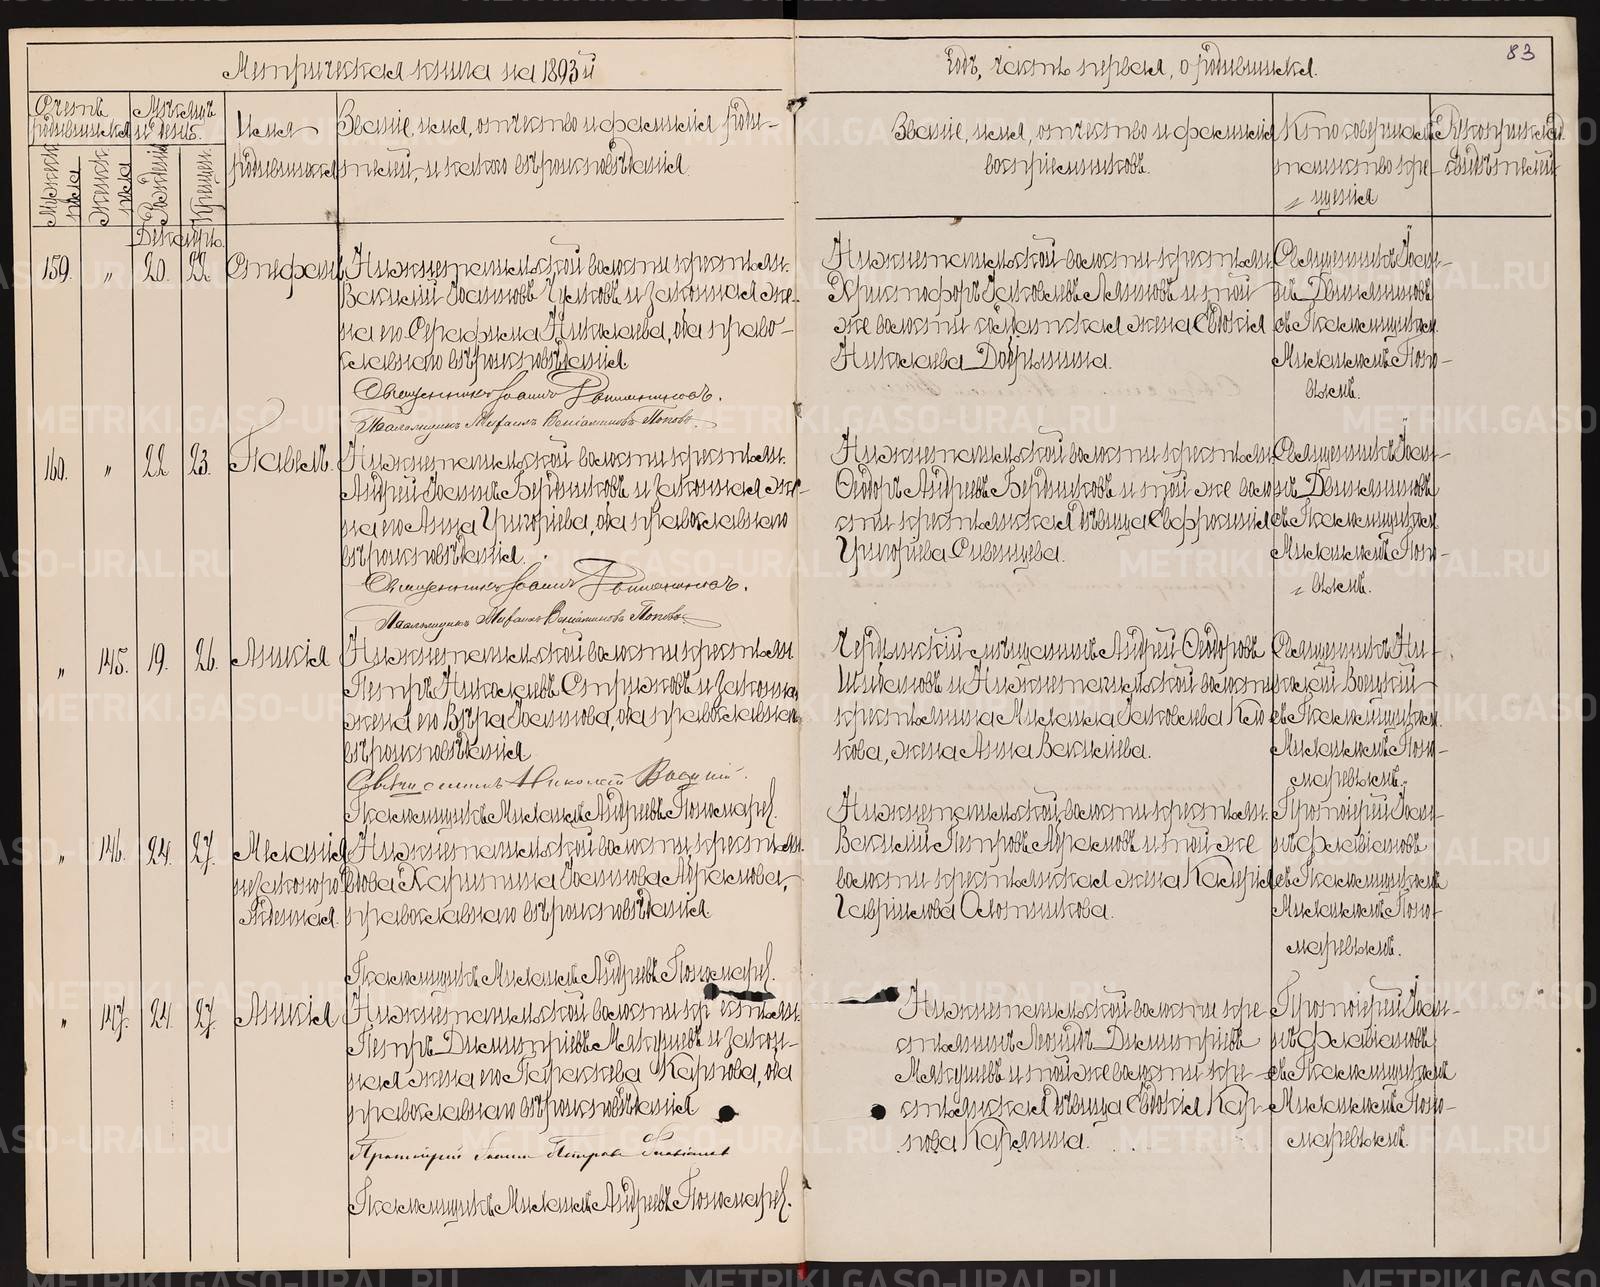 Метрическая книга на 1893й
годъ, часть первая, о родившихся.
83
Счетъ родившихся
Мужеска пола
Женска пола
Мѣсяцъ и день.
Рожденія
Крещенія
Имя родившихся
Званіе, имя, отчество и фамилія роди-
телей, и какого вѣроисповѣданія
Званіе, имя, отчество и фамилія
воспріемниковъ.
Кто совершалъ
таинство кре-
щенія
Рукоприклад.
свидѣтелей
Декабрь.
159. " 20. 22. Стефанъ
Нижнетагильской волости крестьян.
Василий Іоанновъ Чусовъ и законная же-
на его Серафима Николаева, оба право-
славнаго вѣроисповѣданія
Священникъ Іоаннъ
Псаломщикъ Михаилъ Веніаминовъ Поповъ.
Нижнетагильской волости крестьян.
Христофоръ Яковлевъ Ляпновъ и той
же волости солдатская жена Евдокія
Николаева Добрынина.
Священникъ Іоан-
нъ
съ Псаломщиком
Михаиломъ Попо-
вымъ.
160. " 22. 23. Павелъ.
Нижнетагильской волости крестьян.
Андрей Іоаннъ Бердниковъ и законная же-
на его Анна Григоріева, оба православнаго
вѣроисповѣданія.
Священникъ Іоаннъ
Псаломщикъ Михаилъ Веніаминовъ Поповъ
Нижнетагильской волости крестьян.
Ѳеодоръ Андреевъ Бердниковъ и той же воло-
сти крестьянская дѣвица Евфросинія
Григориева Сивенцева.
Священникъ Іоан-
нъ
съ Псаломщиком
Михаиломъ Попо-
вымъ.
" 145. 19. 26. Анисія
Нижнетагильской волости крестьян
Петръ Николаевъ Стрижовъ и законна
жена его Вѣра Іоаннова, оба православнаго
вѣроисповѣданія
Священникъ Николай
Псаломщикъ Михаилъ Андреевъ Пономарев.
Чердынскій мѣщанинъ Андрей Ѳеодоровъ
Шибановъ и Нижнетагильской волости
крестьянина Михаила Яковлева Клю-
кова, жена Анна Василіева.
Священникъ Ни-
колай
съ Псаломщиком
Михаиломъ Поно-
маревымъ.
" 146. 24. 27. Меланія
незаконоро-
жденная.
Нижнетагильской волости крестьян.
вдова Харитина Іоаннова Абрамова,
православнаго вѣроисповѣданія.
Псаломщикъ Михаилъ Андреевъ Пономарев.
Нижнетагильской волости крестьян.
Василий Петровъ Абрамовъ и той же
волости крестьянская жена Калерія
Гавриилова Слотникова.
Протоіерей Іоан-
нъ Флавіановъ
съ Псаломщикомъ
Михаиломъ Поно-
маревымъ.
" 147. 24. 27. Анисія
Нижнетагильской волости крестьян.
Петръ Димитріевъ Мякушевъ и закон-
ная жена его Параскева Карпова, оба
православнаго вѣроисповѣданія
Протоіерей Іоаннъ Петровъ Флавіановъ
Псаломщикъ Михаилъ Андреевъ Пономарев.
Нижнетагильской волости кре-
стьянинъ Леонидъ Димитріевъ
Мякушевъ и той же волости кре-
стьянская дѣвица Евдокія Кар-
пова Карякина.
Протоіерей Іоан-
нъ Флавіановъ
съ Псаломщикомъ
Михаиломъ Поно-
маревымъ.
METRIKI.GASO-URAL.RU